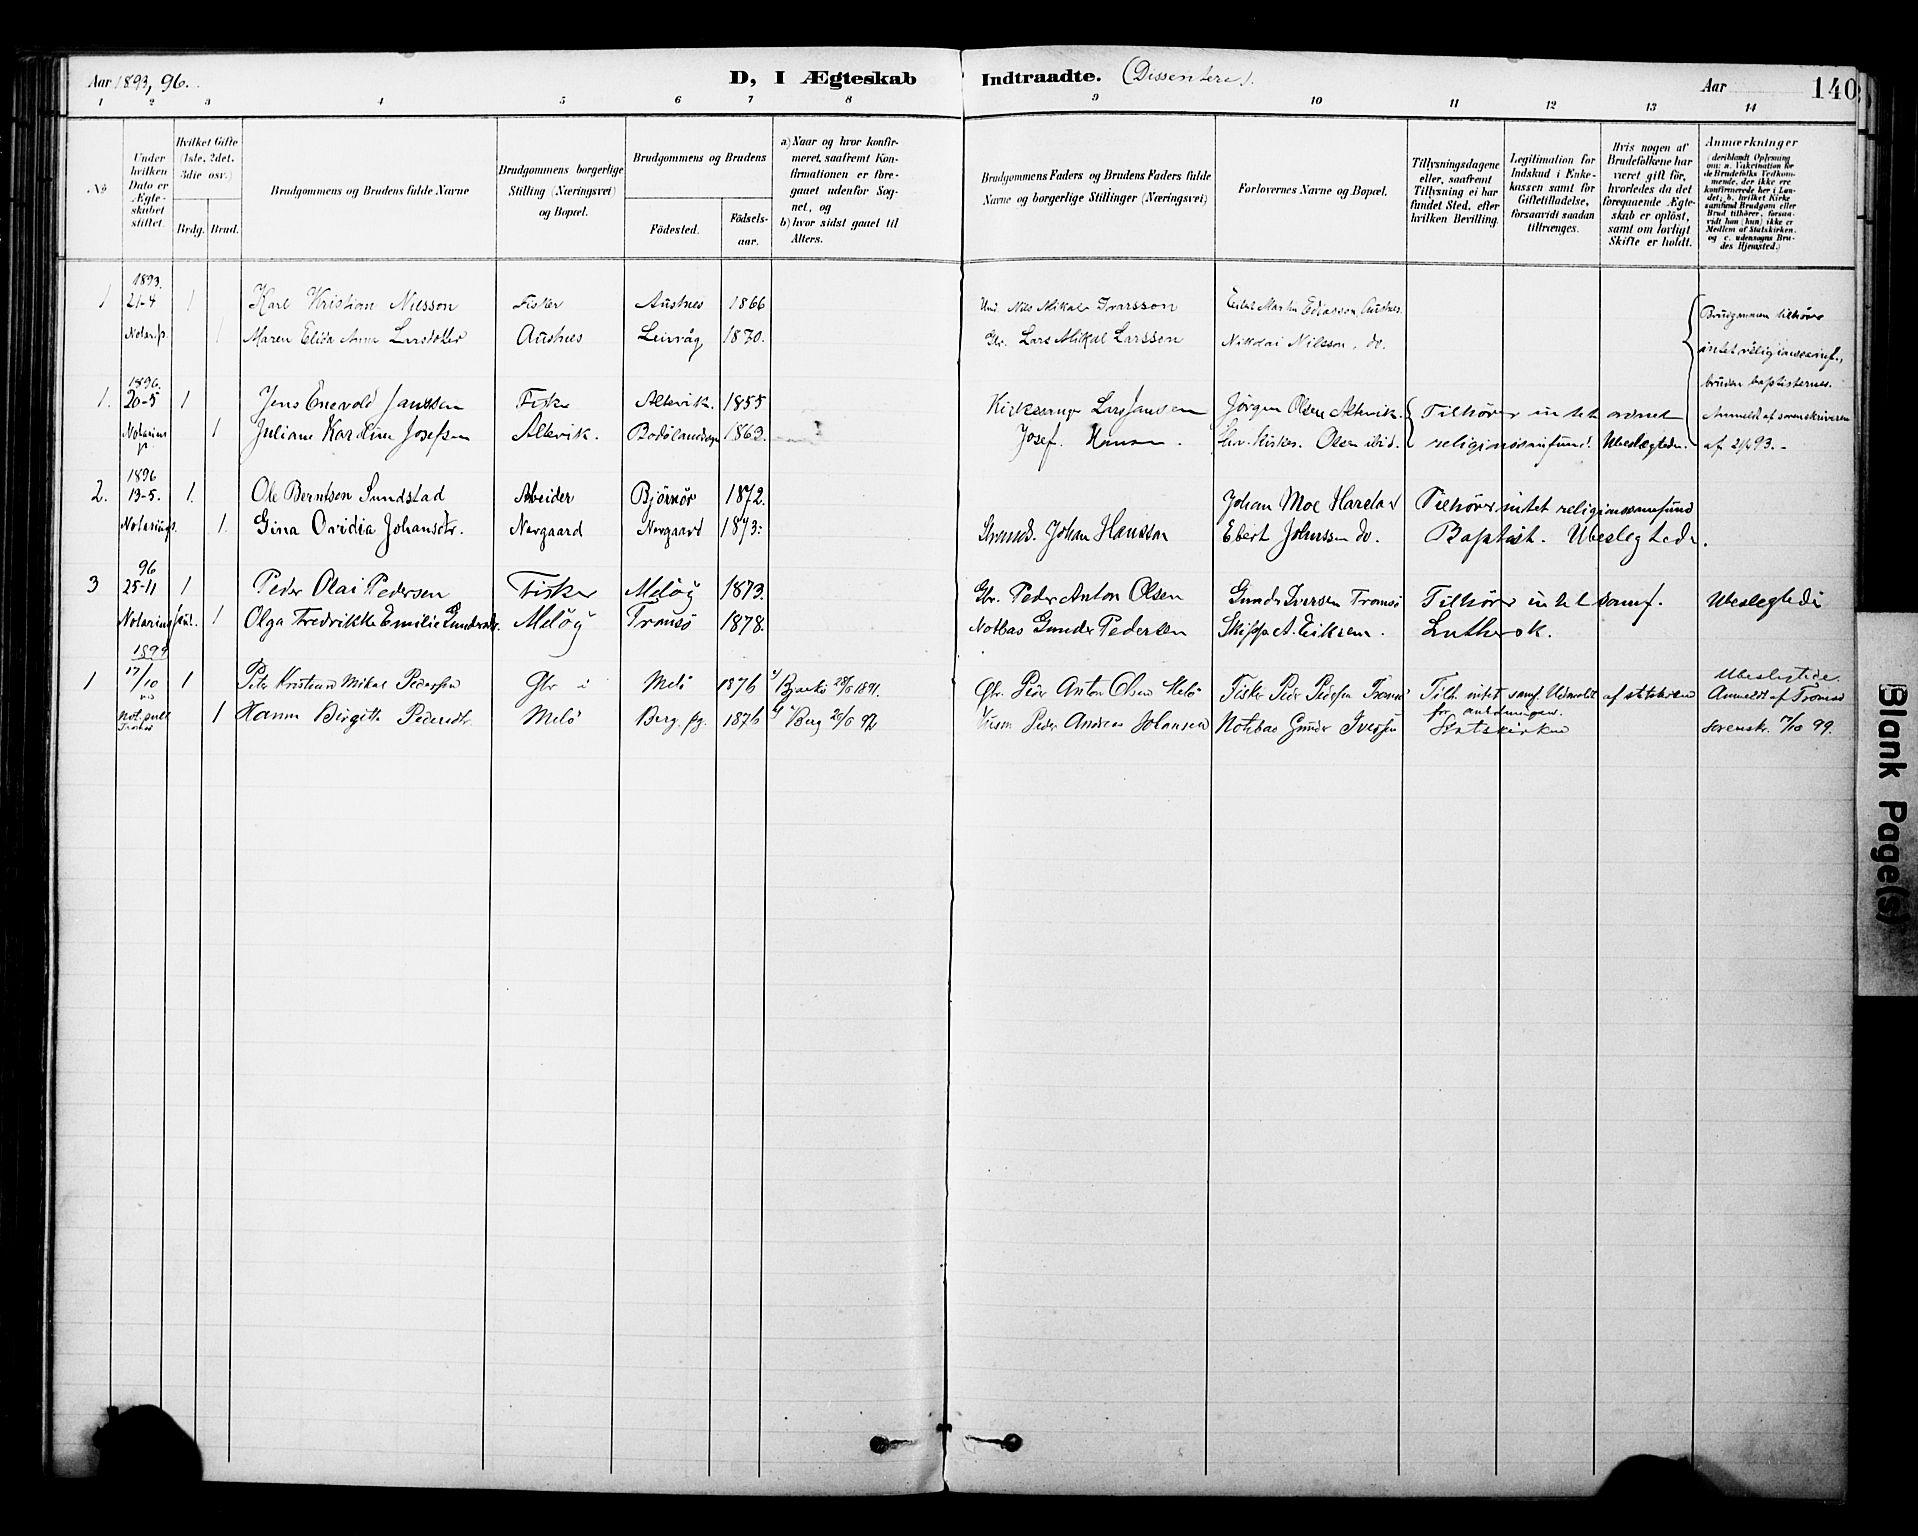 Aar 1893, 96.
D, I Ægteskab Indtraadte. (Dissentere).
Aar 140
1 2 3 4 5 6 7 8 9 10 11 12 13 14
No
Under hvilken Dato er Ægteskabet stiftet.
Hvilket Gifte (1ste, 2det, 3die osv.)
Brdg. Brud.
Brudgommens og Brudens fulde Navne
Brudgommens borgerlige Stilling (Næringsvei) og Bopæl.
Brudgommens og Brudens
Födested. Födselsaar.
a) Naar og hvor konfirmeret, saafremt Konfirmationen er foregaaet udenfor Sognet, og
b) hvor sidst gaaet til Alters.
Brudgommens Faders og Brudens Faders fulde Navne og borgerlige Stillinger (Næringsvei)
Forlovernes Navne og Bopæl.
Tillysningsdagene eller, saafremt Tillysning ei har fundet Sted, efter hvilken Bevilling.
Legitimation for Indskud i Enkekassen samt for Giftetilladelse, forsaavidt saadan tiltrænges.
Hvis nogen af Brudefolkene har været gift før, hvorledes da det foregaaende Ægteskab er oplöst, samt om lovligt Skifte er holdt.
Anmærkninger
(deriblandt Oplysning om: a. Vakcination for de Brudefolks Vedkommende, der ikke ere konfirmerede her i Landet, b. hvilket Kirkesamfund Brudgom eller Brud tilhörer, forsaavidt han (hun) ikke er Medlem af Statskirken, og c. udensogns Brudes Hjemsted.)
1893.
1 21-4 1 Karl Kristian Nilsson Fisker Austnes 1866 Nils Mikal Ivarsson Martin Ediasson, Austnes. Brudgommen tilhører
Notar. p. 1 Maren Elida Anna Larsdatter Austnes Leirvåg 1870. Gbr. Lars Mikal Larsson Nikolai Nilsson, do. intet religionssamf.,
bruden baptisternes.
1896.
1. 20-5 1 Jens Enevold Janssen Fisker Altevik. 1855 Kirkesanger Lars Jansen Jørgen Olsen Altevik. Tilhører intet ordnet Anmeldt af sorenskriveren
Notarius p. 1 Juliane Karoline Josefsen Altevik. Bodølandsogn 1863. Josef Hansen. Olsen ibid. religionssamfund. Ubeslægtede. af 21/4 93.-
1896
2. 13-5. 1. Ole Berntsen Sundstad Arbeider Bjørnør 1872. Johan Moe Harstad Tilhører intet religionssamfund
Notarius p. 1. Gina Ovidia Johansdtr. Nergaard Nergaard 1873. Strands. Johan Hansson Ebert Johnssen do. Baptist. Ubeslegtede.
96
3 25-11 1 Peder Olai Pedersen Fisker Meløy 1873. Gbr. Peder Anton Olsen Gunder Iversen Tromsø Tilhører intet samf. Ubeslegtede
Notarius publ. 1 Olga Fredrikke Emilie Gundersdr. Meløy Tromsø 1878. Notbas Gunder Pedersen Skipp. A. Eriksen. Luthersk.
1899
1 17/10 1 Peter Kristian Mikal Pedersen Gbr i Melø 1876 Bjarkø 1891. Gbr. Peder Anton Olsen Melø Fisker Peder Pedersen Tromsø Tilh. intet samf. Udmeldt af statskirken Ubeslegtede. Anmeldt af Tromsø
Not. publ. Tromsø 1 Hanna Birgitte Pedersdtr. Melø Berg pg. 1876 Berg 92 Peder Andreas Johansen Notbas Gunder Iversen Statskirken sorenskr. 17/10 99.
Blank Page(s)